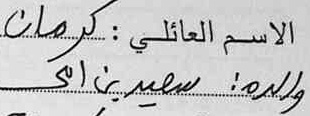 الاسم العائلي : كرمان
والده : سعيد بن